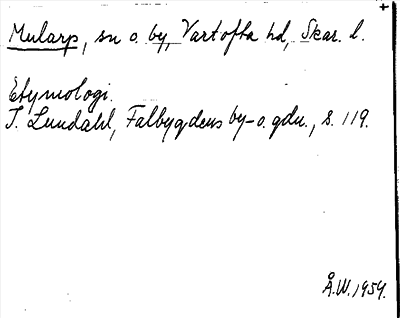 Mularp, sn o. by, Vartofta hd, Skar. l.
Etymologi.
I. Lundahl, Falbygdens by- o. gdn., s. 119.
Å.W. 1959.